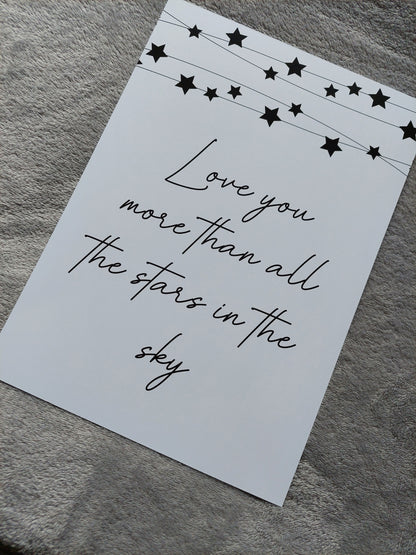 Love you
more than all
the stars in the
sky